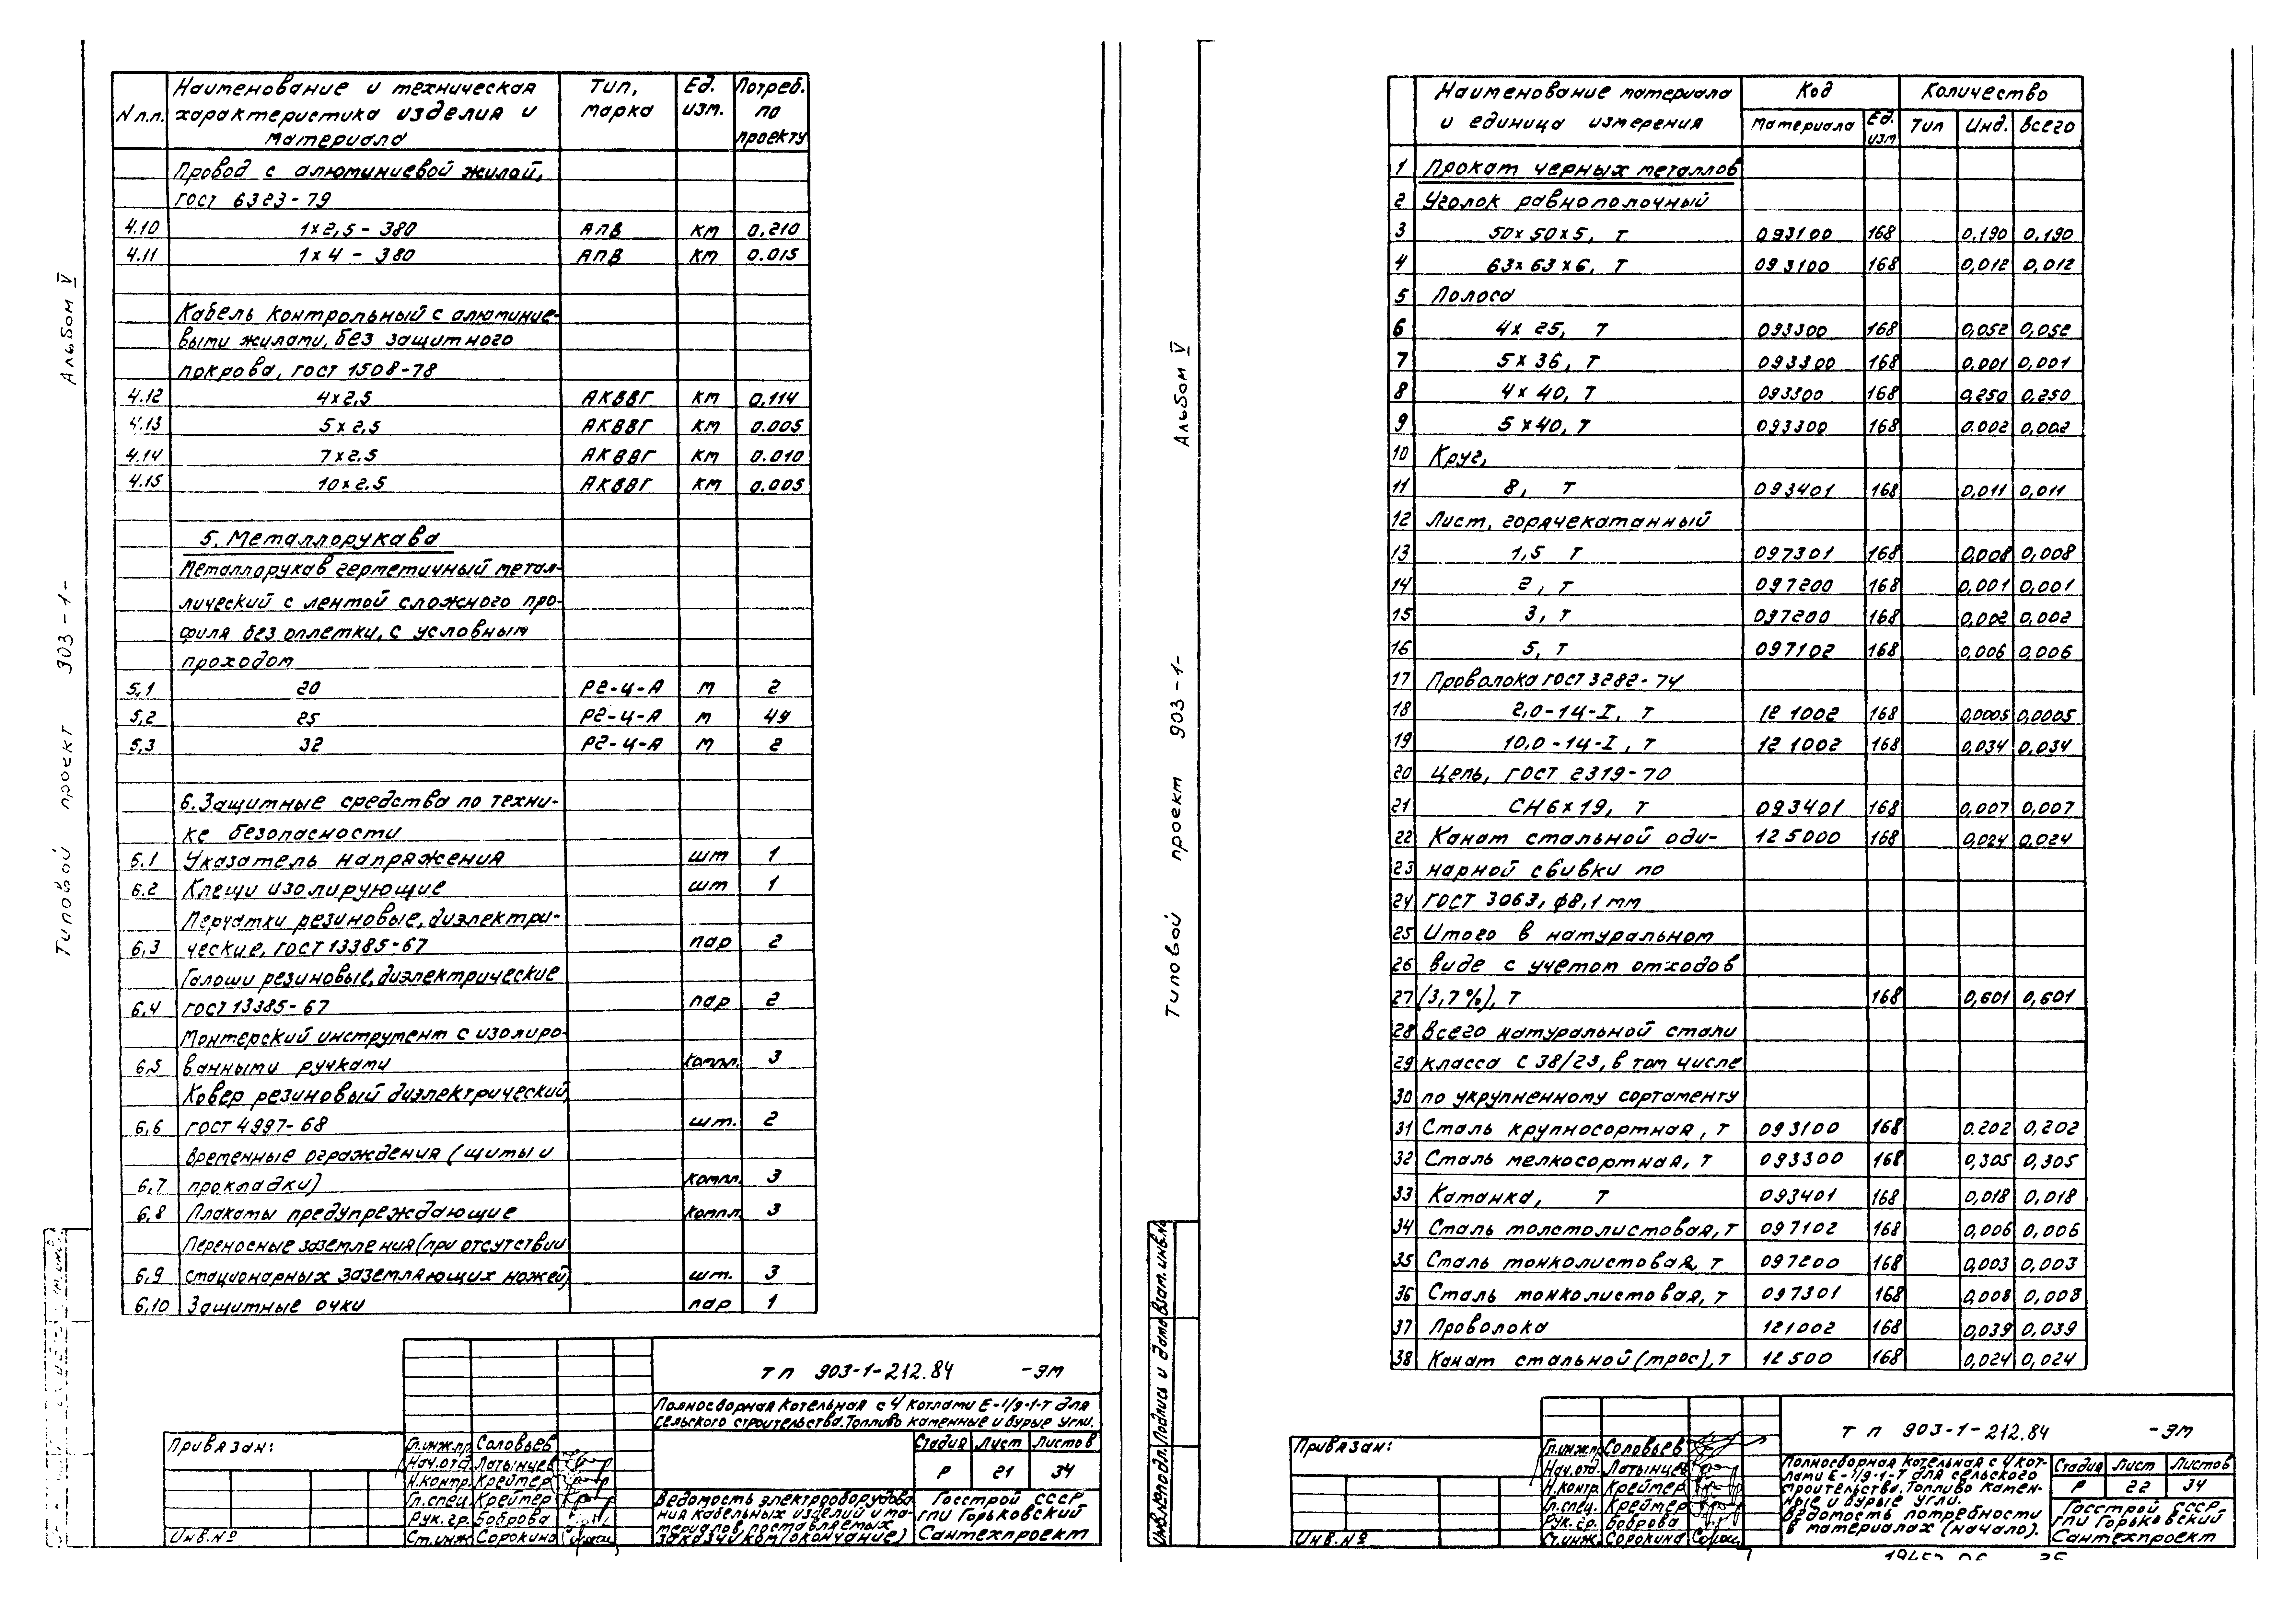 Альбом V
Типовой проект 303-1-
N п.п. Наименование и техническая характеристика изделия и материала Тип, марка Ед. изм. Потреб. по проекту
Провод с алюминиевой жилой,
ГОСТ 6323-79
4.10 1х2,5-380 АПВ км 0.210
4.11 1х4-380 АПВ км 0.015
Кабель контрольный с алюминие-
выми жилами, без защитного
покрова, ГОСТ 1508-78
4.12 4х2.5 АКВВГ км 0.114
4.13 5х2,5 АКВВГ км 0.005
4.14 7х2.5 АКВВГ км 0.010
4.15 10х2.5 АКВВГ км 0.005
5. Металлорукава
Металлорукав герметичный метал-
лический с лентой сложного про-
филя без оплетки, с условным
проходом
5,1 20 Р2-Ц-А м 2
5,2 25 Р2-Ц-А м 49
5,3 32 Р2-Ц-А м 2
6. Защитные средства по техни-
ке безопасности
6.1 Указатель напряжения шт 1
6.2 Клещи изолирующие шт 1
Перчатки резиновые, диэлектри-
6,3 ческие, ГОСТ 13385-67 пар 2
Галоши резиновые, диэлектрические
6,4 ГОСТ 13385-67 пар 2
Монтерский инструмент с изолиро-
6,5 ванными ручками компл. 3
Ковер резиновый диэлектрический,
6,6 ГОСТ 4997-68 шт. 2
Временные ограждения (щиты и
6,7 прокладки) компл. 3
6,8 Плакаты предупреждающие компл. 3
Переносные заземления (при отсутствии
6,9 стационарных заземляющих ножей) шт. 3
6,10 Защитные очки пар 1
ТП 903-1-212.84 -ЭМ
Полносборная котельная с 4 котлами Е-1/9-1-Т для
сельского строительства. Топливо каменные и бурые угли.
Привязан:
Инв.№
Гл.инж.пр. Соловьев
Нач.отд. Латынцев
Н.контр. Крейтер
Гл.спец. Крейтер
Рук.гр. Боброва
Ст.инж. Сорокина
Стадия Лист Листов
Р 21 34
Ведомость электрооборудова-
ния кабельных изделий и ма-
териалов, поставляемых
заказчиком (окончание)
Госстрой СССР
ГПИ Горьковский
Сантехпроект
Альбом V
Типовой проект 903-1-
Инв.№подл. Подпись и дата Взам.инв.№
Наименование материала и единица измерения Код Количество
Материала Ед. изм Тип Инд. Всего
1 Прокат черных металлов
2 Уголок равнополочный
3 50х50х5, т 093100 168 0,190 0,190
4 63х63х6, т 093100 168 0,012 0,012
5 Полоса
6 4х25, т 093300 168 0,052 0,052
7 5х36, т 093300 168 0.001 0,001
8 4х40, т 093300 168 0,250 0,250
9 5х40, т 093300 168 0.002 0,002
10 Круг,
11 8, т 093401 168 0,011 0,011
12 Лист, горячекатанный
13 1,5 т 097301 168 0,008 0,008
14 2, т 097200 168 0,001 0,001
15 3, т 097200 168 0,002 0,002
16 5, т 097102 168 0,006 0,006
17 Проволока ГОСТ 3282-74
18 2,0-14-I, т 121002 168 0,0005 0,0005
19 10,0-14-I, т 121002 168 0,034 0,034
20 Цепь, ГОСТ 2319-70
21 СН6х19, т 093401 168 0,007 0,007
22 Канат стальной оди- 125000 168 0,024 0,024
23 нарной свивки по
24 ГОСТ 3063, ф8,1 мм
25 Итого в натуральном
26 виде с учетом отходов
27 (3,7%), т 168 0,601 0,601
28 Всего натуральной стали
29 класса С 38/23, в том числе
30 по укрупненному сортаменту
31 Сталь крупносортная, т 093100 168 0.202 0,202
32 Сталь мелкосортная, т 093300 168 0,305 0,305
33 Катанка, т 093401 168 0,018 0,018
34 Сталь толстолистовая, т 097102 168 0,006 0,006
35 Сталь тонколистовая, т 097200 168 0,003 0,003
36 Сталь тонколистовая, т 097301 168 0,008 0,008
37 Проволока 121002 168 0,039 0,039
38 Канат стальной (трос), т 12500 168 0,024 0,024
ТП 903-1-212.84 -ЭМ
Привязан:
Инв.№
Гл.инж.пр Соловьев
Нач.отд. Латынцев
Н.контр. Крейтер
Гл.спец. Крейтер
Рук.гр. Боброва
Ст.инж. Сорокина
Полносборная котельная с 4 кот-
лами Е-1/9-1-Т для сельского
строительства. Топливо камен-
ные и бурые угли.
Ведомость потребности
в материалах (начало).
Стадия Лист Листов
Р 22 34
Госстрой СССР,
ГПИ Горьковский
Сантехпроект